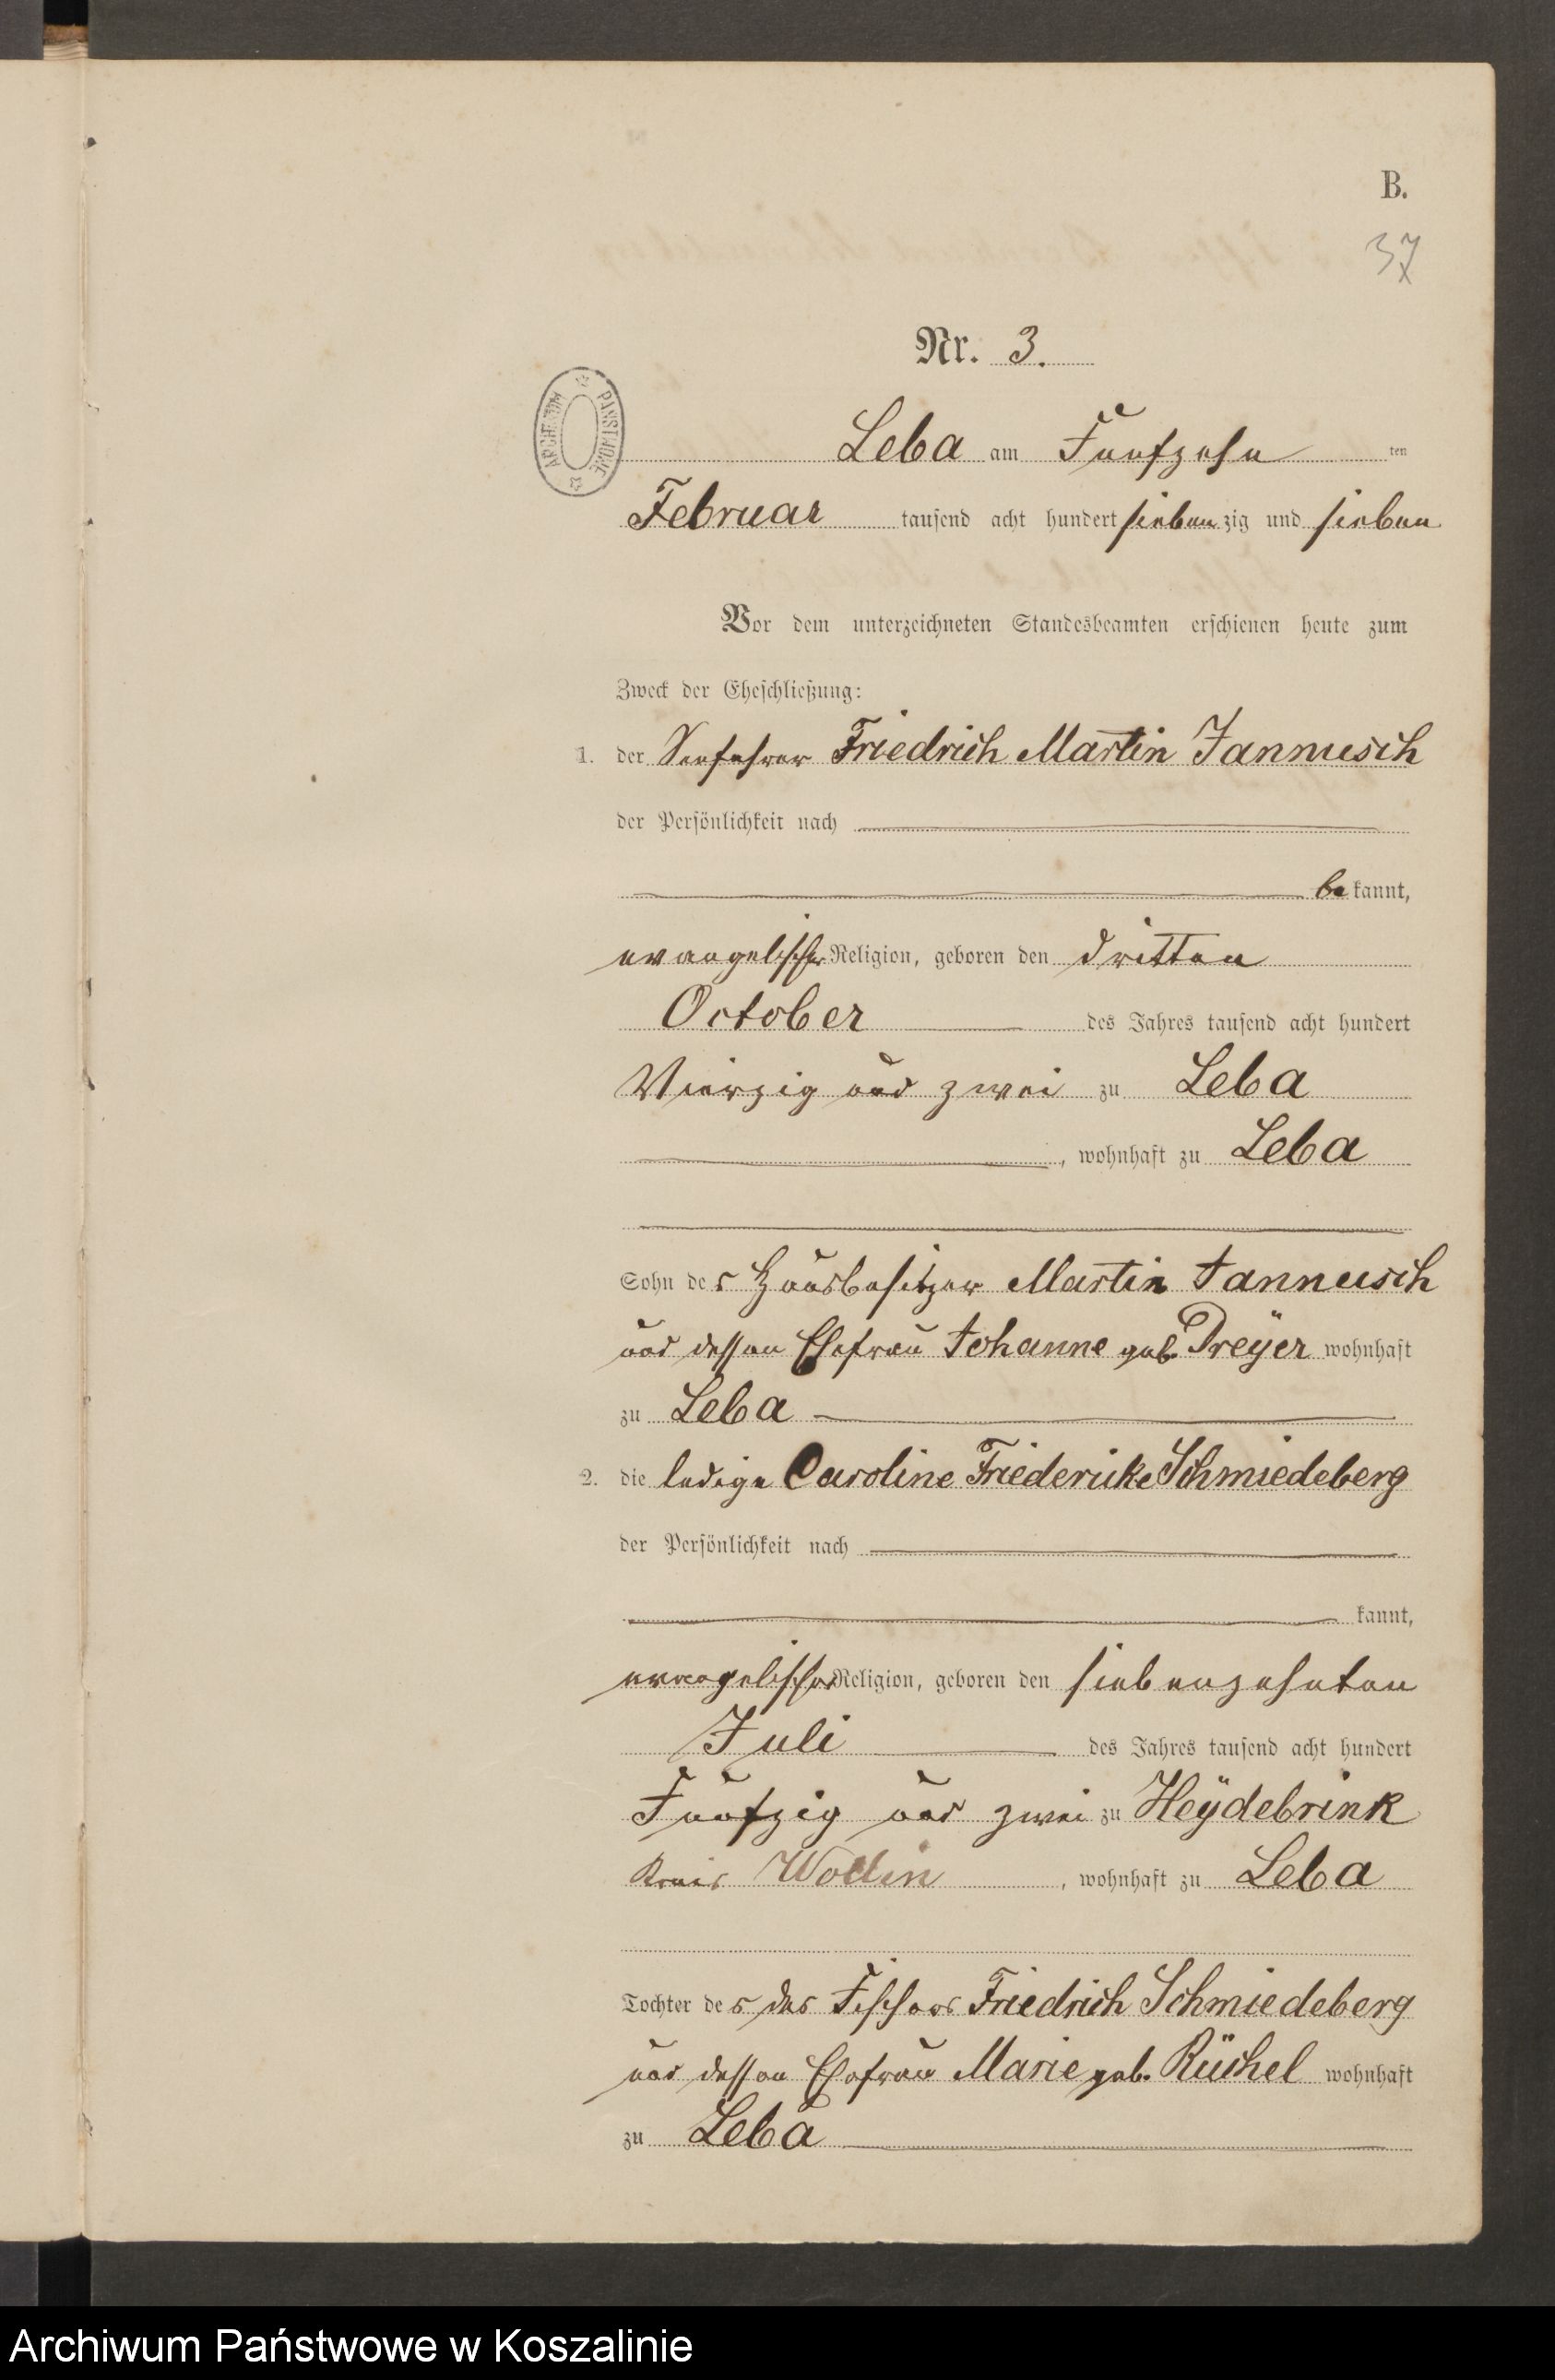 B.
37
Nr. 3.
ARCHIWUM PAŃSTWOWE
Leba am Fünfzehn ten
Februar tausend acht hundert siebenzig und sieben
Vor dem unterzeichneten Standesbeamten erschienen heute zum
Zweck der Eheschließung:
1. der Seefahrer Friedrich Martin Jannusch
der Persönlichkeit nach
bekannt,
evangelischer Religion, geboren den dritten
October des Jahres tausend acht hundert
Vierzig und zwei zu Leba
, wohnhaft zu Leba
Sohn des Hausbesitzer Martin Jannusch
und dessen Ehefrau Johanne geb. Dreÿer wohnhaft
zu Leba
2. die ledige Caroline Friederike Schmiedeberg
der Persönlichkeit nach
kannt,
evangelischer Religion, geboren den siebenzehnten
Juli des Jahres tausend acht hundert
Fünfzig und zwei zu Heÿdebrink
Kreis Wollin , wohnhaft zu Leba
Tochter des des Fischers Friedrich Schmiedeberg
und dessen Ehefrau Marie geb. Rüchel wohnhaft
zu Leba
Archiwum Państwowe w Koszalinie